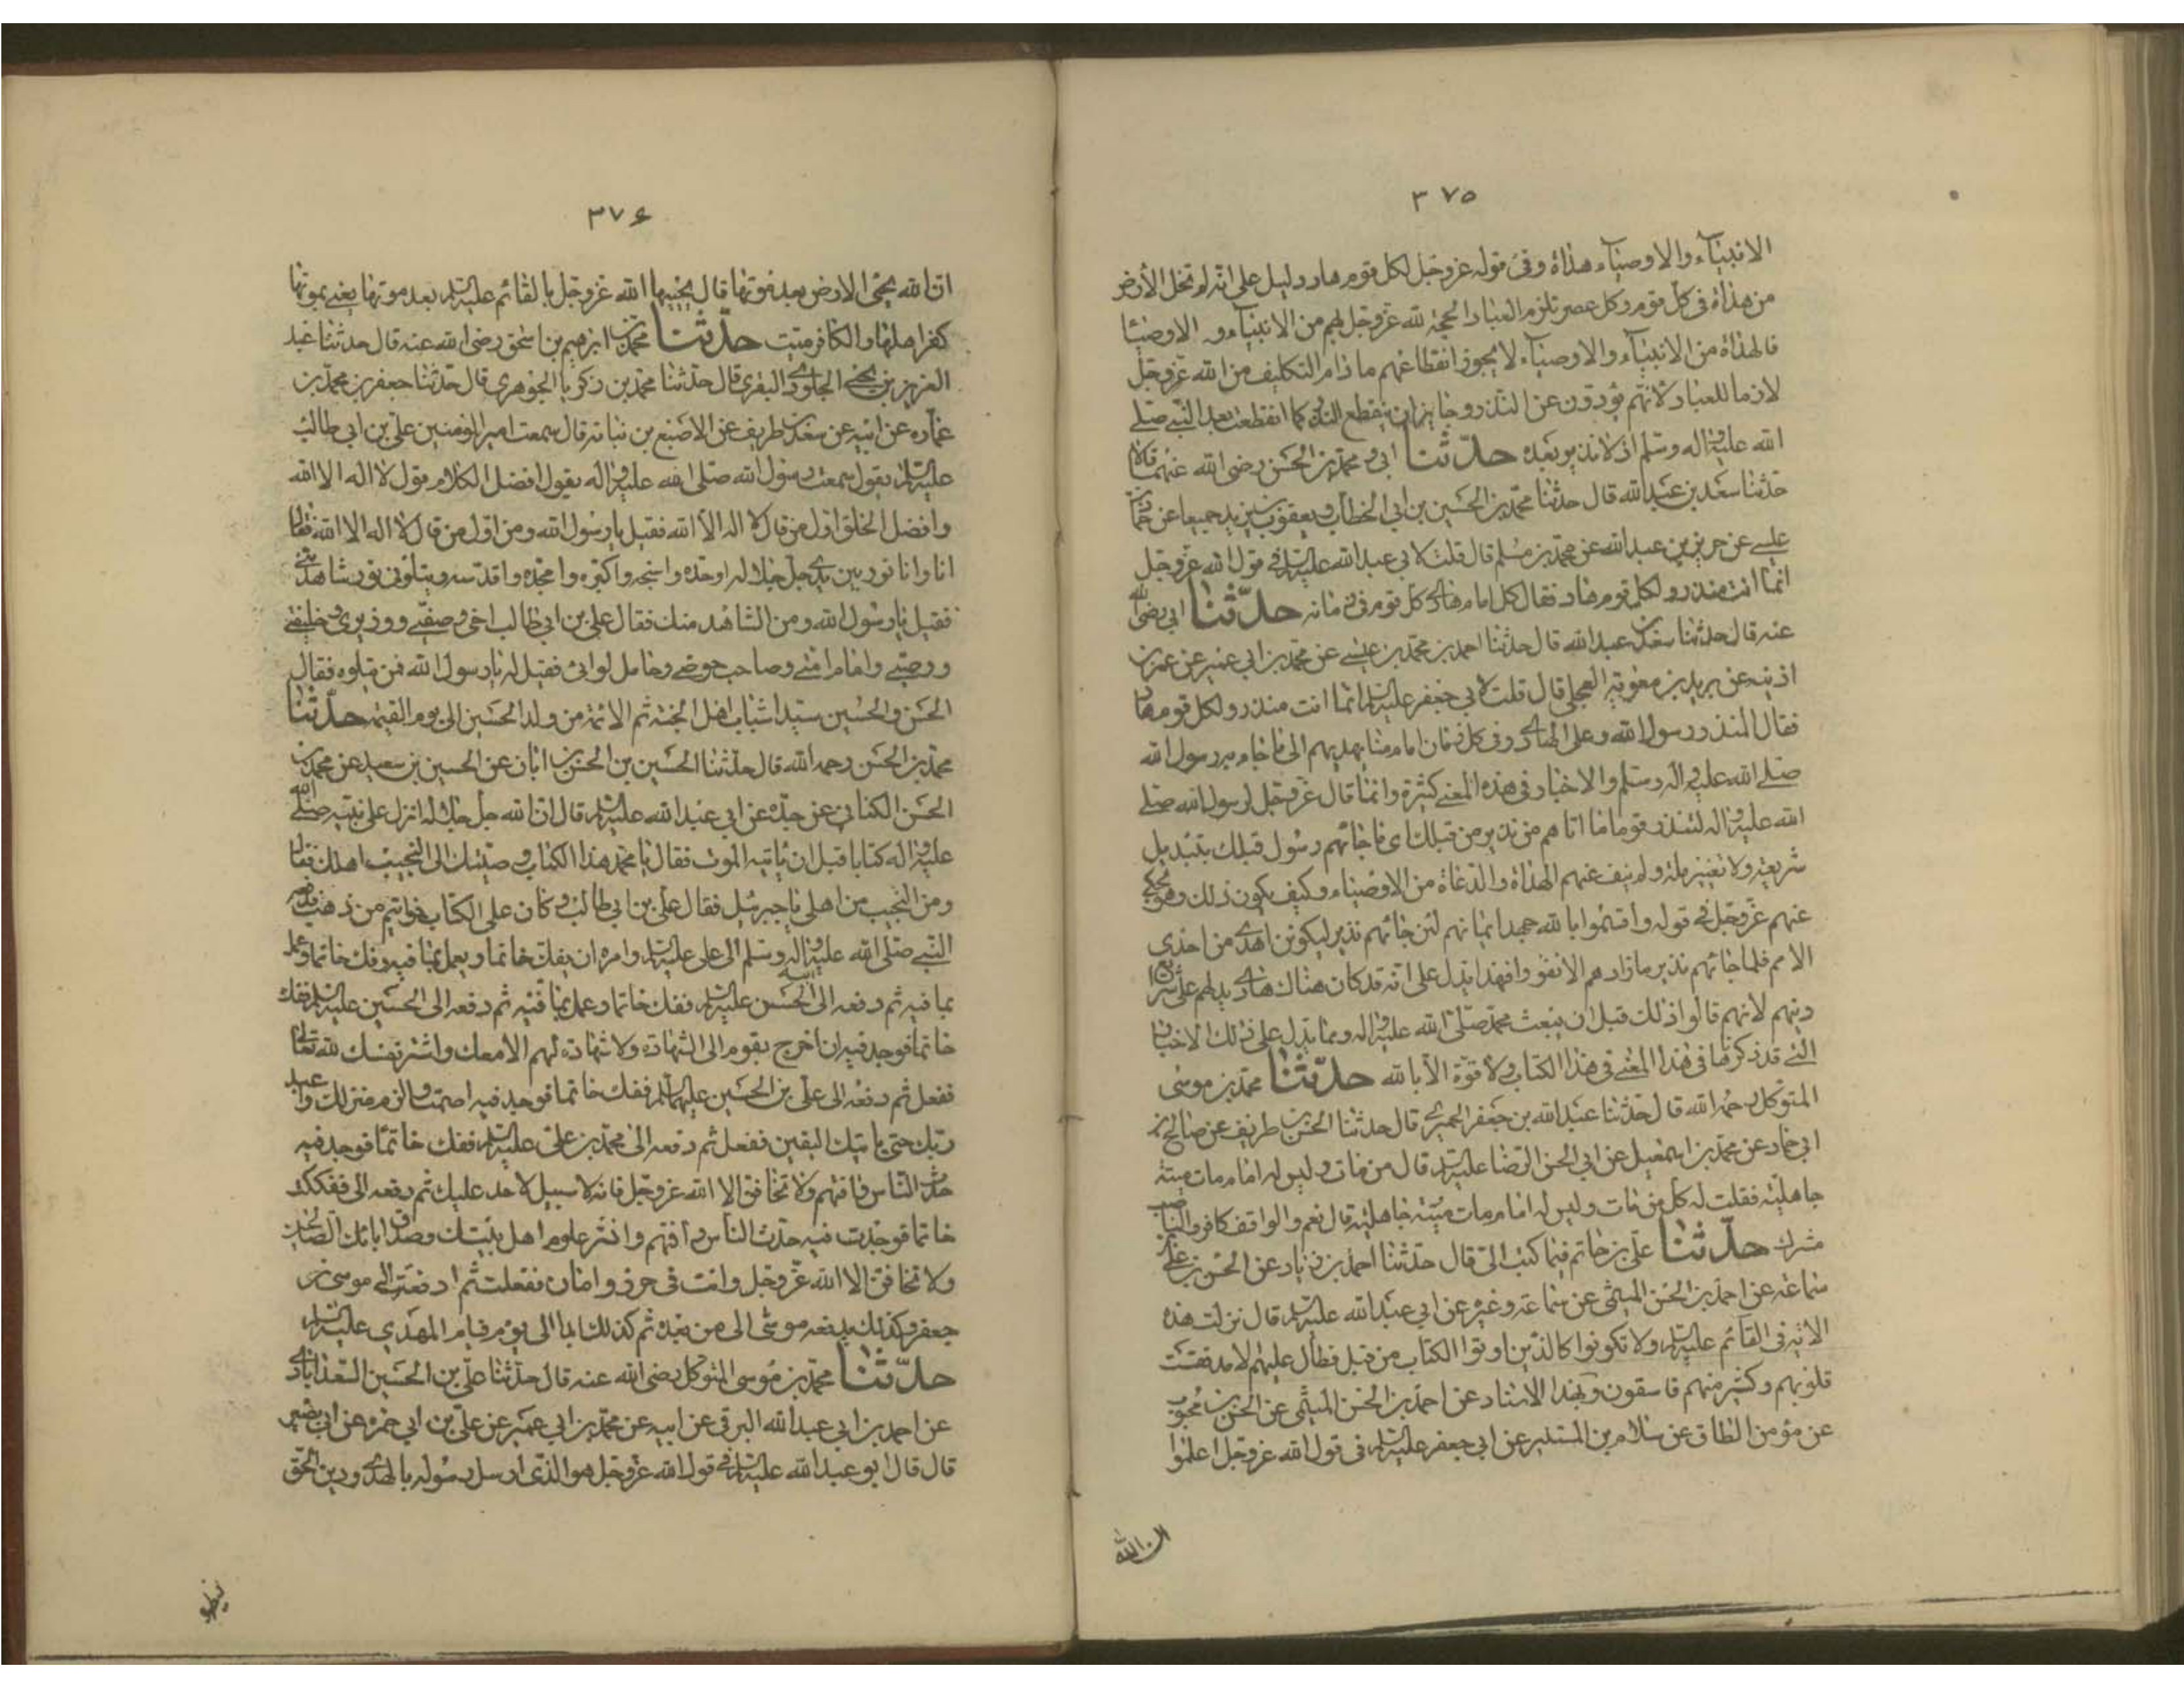 ٣٧٥
الانبيآء والاوصيآء هداة وفى قوله عزوجل لكل قوم هاد دليل على انه لم تخل الأرض
من هداة فى كل قوم وكل عصر تلزم العباد الحجة لله عزوجل بهم من الانبيآء و الاوصيآ
فالهداة من الانبيآء والاوصيآء لا يجوز انقطاعهم ما دام التكليف من الله عزوجل
لازما للعباد لأنهم يؤدون عن النذر وجايز ان ينقطع النذر كما انقطعت بعد النبى صلى
الله عليه واله وسلم اذ لا نذير بعده حدّثنا ابى ومحمد بن الحسن رضى الله عنهما قالا
حدثنا سعد بن عبد الله قال حدثنا محمد بن الحسين بن ابى الخطاب ويعقوب بن يزيد جميعا عن حماد بن
عيسى عن حريز بن عبد الله عن محمد بن مسلم قال قلت لابى عبد الله عليه السلم فى قول الله عزوجل
انما انت منذر ولكل قوم هاد فقال كل امام هادى كل قوم فى زمانه حدّثنا ابى رضى الله
عنه قال حدثنا سعد بن عبد الله قال حدثنا احمد بن محمد بن عيسى عن محمد بن ابى عمير عن عمر بن
اذينه عن بريد بن معوية العجلى قال قلت لابى جعفر عليه السلم انما انت منذر ولكل قوم هاد
فقال المنذر رسول الله وعلى الهادى وفى كل زمان امام منا يهديهم الى ما جاء به رسول الله
صلى الله عليه واله وسلم والاخبار فى هذه المعنى كثيرة وانما قال عزوجل لرسول الله صلى
الله عليه واله لتنذر قوما ما اتاهم من نذير من قبلك اى ما جائهم رسول قبلك بتبديل
شريعة ولا تغيير ملة ولم ينف عنهم الهداة والدعاة من الاوصياء وكيف يكون ذلك وهو يحكى
عنهم عزوجل فى قوله واقسموا بالله جهد ايمانهم لئن جائهم نذير ليكونن اهدى من احدى
الامم فلما جائهم نذير ما زادهم الا نفورا فهذا يدل على انه قد كان هناك هادى يدلهم على شرايع
دينهم لانهم قالوا ذلك قبل ان يبعث محمد صلى الله عليه واله ومما يدل على ذلك الاخبار
التى قد ذكرناها فى هذا المعنى فى هذا الكتاب ولا قوة الا بالله حدّثنا محمد بن موسى
المتوكل رحمه الله قال حدثنا عبد الله بن جعفر الحميرى قال حدثنا الحسن بن طريف عن صالح بن
ابى حماد عن محمد بن اسمعيل عن ابى الحسن الرضا عليه السلم قال من مات وليس له امام مات ميتة
جاهلية فقلت له كل من مات وليس له امام مات ميتة جاهلية قال نعم والواقف كافر والناصب
مشرك حدّثنا على بن حاتم فيما كتب الىّ قال حدثنا احمد بن زياد عن الحسن بن على بن
سماعة عن احمد بن الحسن الميثمى عن سماعة وغيره عن ابى عبد الله عليه السلم قال نزلت هذه
الاية فى القآئم عليه السلم ولا تكونوا كالذين اوتوا الكتاب من قبل فطال عليهم الامد فقست
قلوبهم وكثير منهم فاسقون وبهذا الاسناد عن احمد بن الحسن الميثمى عن الحسن بن محبوب
عن مؤمن الطاق عن سلام بن المستنير عن ابى جعفر عليه السلم فى قول الله عزوجل اعلموا
ان الله
٣٧۶
ان الله يحيى الارض بعد موتها قال يحييها الله عزوجل بالقائم عليه السلم بعد موتها يعنى بموتها
كفر اهلها والكافر ميت حدّثنا محمد بن ابرهيم بن اسحق رضى الله عنه قال حدثنا عبد
العزيز بن يحيى الجلودى البصرى قال حدثنا محمد بن زكريا الجوهرى قال حدثنا جعفر بن محمد بن
عماره عن ابيه عن سعد بن طريف عن الاصبغ بن نباته قال سمعت امير المؤمنين على بن ابى طالب
عليه السلم يقول سمعت رسول الله صلى الله عليه واله يقول افضل الكلام قول لا اله الا الله
وافضل الخلق اول من قال لا اله الا الله فقيل يا رسول الله ومن اول من قال لا اله الا الله فقال
انا وانا نور بين يدى جل جلاله اوحده واسبحه واكبره وامجده واقدسه ويتلونى نور شاهد منى
فقيل يا رسول الله ومن الشاهد منك فقال على بن ابى طالب اخى وصفيى ووزيرى وخليفتى
ووصيى وامام امتى وصاحب حوضى وحامل لوائى فقيل له يا رسول الله فمن يتلوه فقال
الحسن والحسين سيدا شباب اهل الجنة ثم الائمة من ولد الحسين الى يوم القيمة حدّثنا
محمد بن الحسن رحمه الله قال حدثنا الحسين بن الحسن بن ابان عن الحسين بن سعيد عن محمد بن
الحسن الكنانى عن جده عن ابى عبد الله عليه السلم قال ان الله جل جلاله انزل على نبيه صلى الله
عليه واله كتابا قبل ان ياتيه الموت فقال يا محمد هذا الكتاب وصيتك الى النجيب اهلك فقال
ومن النجيب من اهلى يا جبرئيل فقال على بن ابى طالب وكان على الكتاب خواتيم من ذهب فدفعه
النبى صلى الله عليه واله وسلم الى على عليه السلم وامره ان يفك خاتما ويعمل بما فيه ففك خاتما وعمل
بما فيه ثم دفعه الى ابنه الحسن عليه السلم ففك خاتما وعمل بما فيه ثم دفعه الى الحسين عليه السلم ففك
خاتما فوجد فيه ان اخرج بقوم الى الشهادة ولا شهادة لهم الا معك واشتر نفسك لله تعالى
ففعل ثم دفعه الى على بن الحسين عليهما السلم ففك خاتما فوجد فيه اصمت والزم منزلك واعبد
ربك حتى ياتيك اليقين ففعل ثم دفعه الى محمد بن على عليه السلم ففك خاتما فوجد فيه
حدث الناس وافتهم ولا تخافن الا الله عزوجل فانه لا سبيل لاحد عليك ثم دفعه الى ففككت
خاتما فوجدت فيه حدث الناس وافتهم وانشر علوم اهل بيتك وصدق ابائك الصالحين
ولا تخافن الا الله عزوجل وانت فى حرز وامان ففعلت ثم ادفعه الى موسى بن
جعفر وكذلك يدفعه موسى الى من بعده ثم كذلك ابدا الى يوم قيام المهدى عليه السلم
حدّثنا محمد بن موسى المتوكل رضى الله عنه قال حدثنا على بن الحسين السعدابادى
عن احمد بن ابى عبد الله البرقى عن ابيه عن محمد بن ابى عمير عن على بن ابى حمزه عن ابى بصير
قال قال ابو عبد الله عليه السلم فى قول الله عزوجل هو الذى ارسل رسوله بالهدى ودين الحق
ليظهره